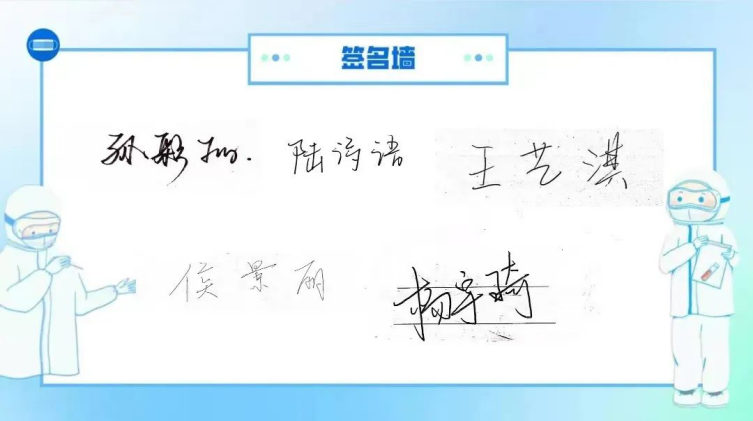 签名墙
孙 陆诗语 王艺淇
侯景丽 杨宇琦